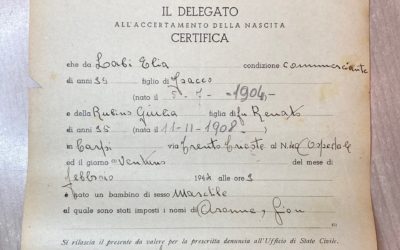 IL DELEGATO
ALL'ACCERTAMENTO DELLA NASCITA
CERTIFICA
che da Labi Elia condizione commerciante
di anni 39 figlio di Isacco
(nato il 7 - 1904)
e della Rubino Giulia figlia di fu Renato
di anni 35 (nato il 11-11-1908)
in Carpi via Trento Trieste al N. Ospedale
ed il giorno Ventuno del mese di
febbraio 1944 alle ore
è nato un bambino di sesso Maschile
al quale sono stati imposti i nomi di Aronne, Sion
Si rilascia il presente da valere per la prescritta denuncia all'Ufficio di Stato Civile,